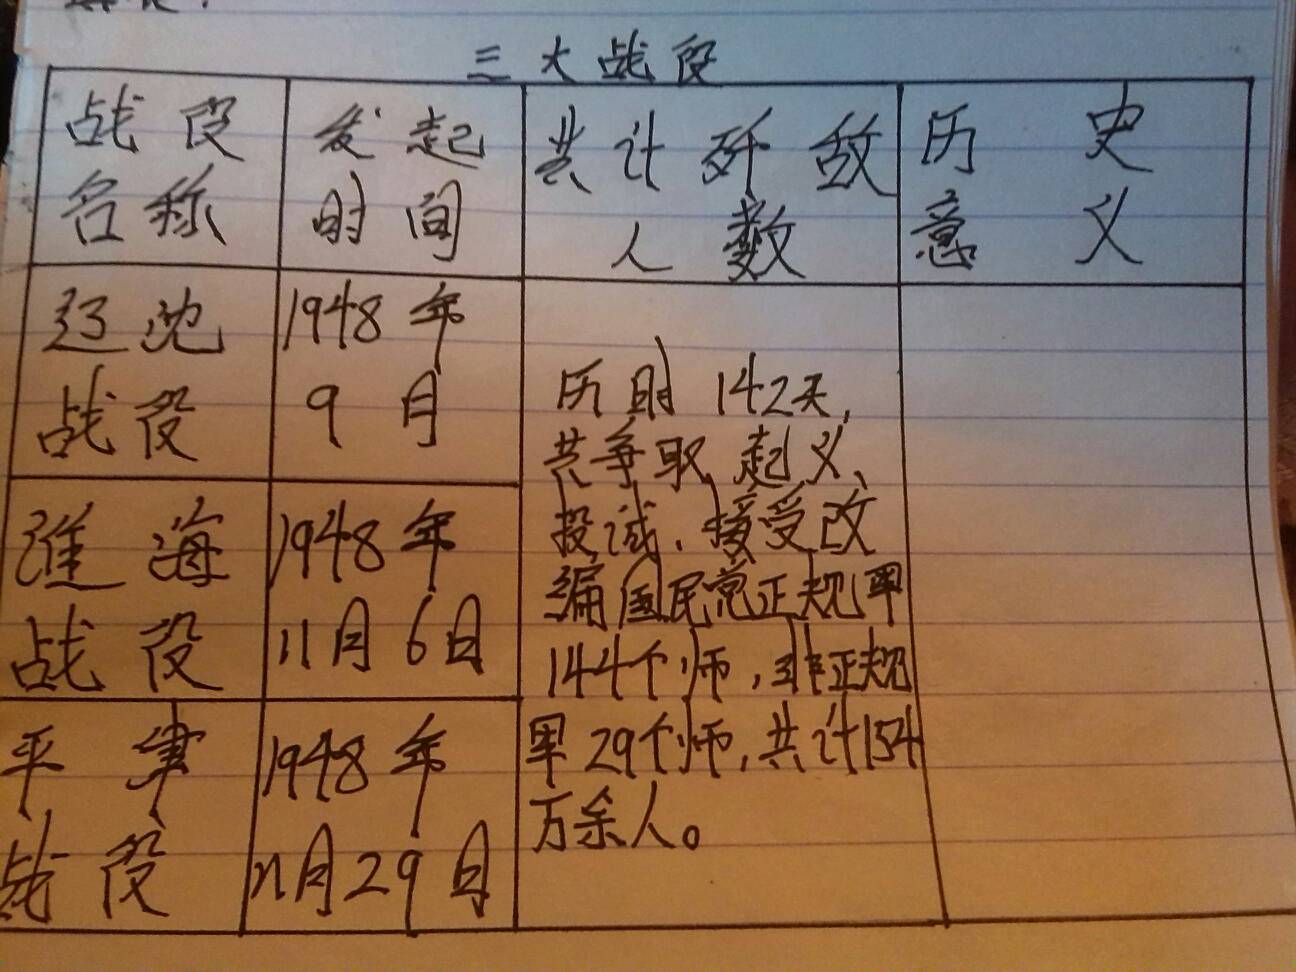 三大战役
战役
名称
发起
时间
共计歼敌
人数
历史
意义
辽沈
战役
1948年
9月
历时142天,
共争取起义、
投诚、接受改
编国民党正规军
144个师,非正规
军29个师,共计154
万余人。
淮海
战役
1948年
11月6日
平津
战役
1948年
11月29日